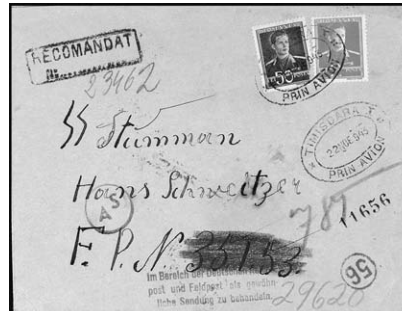 RECOMANDAT
Nr.
23462
50
PRIN AVION
TIMISOARA
PRIN AVION
SS Sturmmann
Hans Schweitzer
F. P. N. 35153
787
11656
56
Im Bereich der Deutschen
post und Feldpost als gewöhn-
liche Sendung zu behandeln.
29620